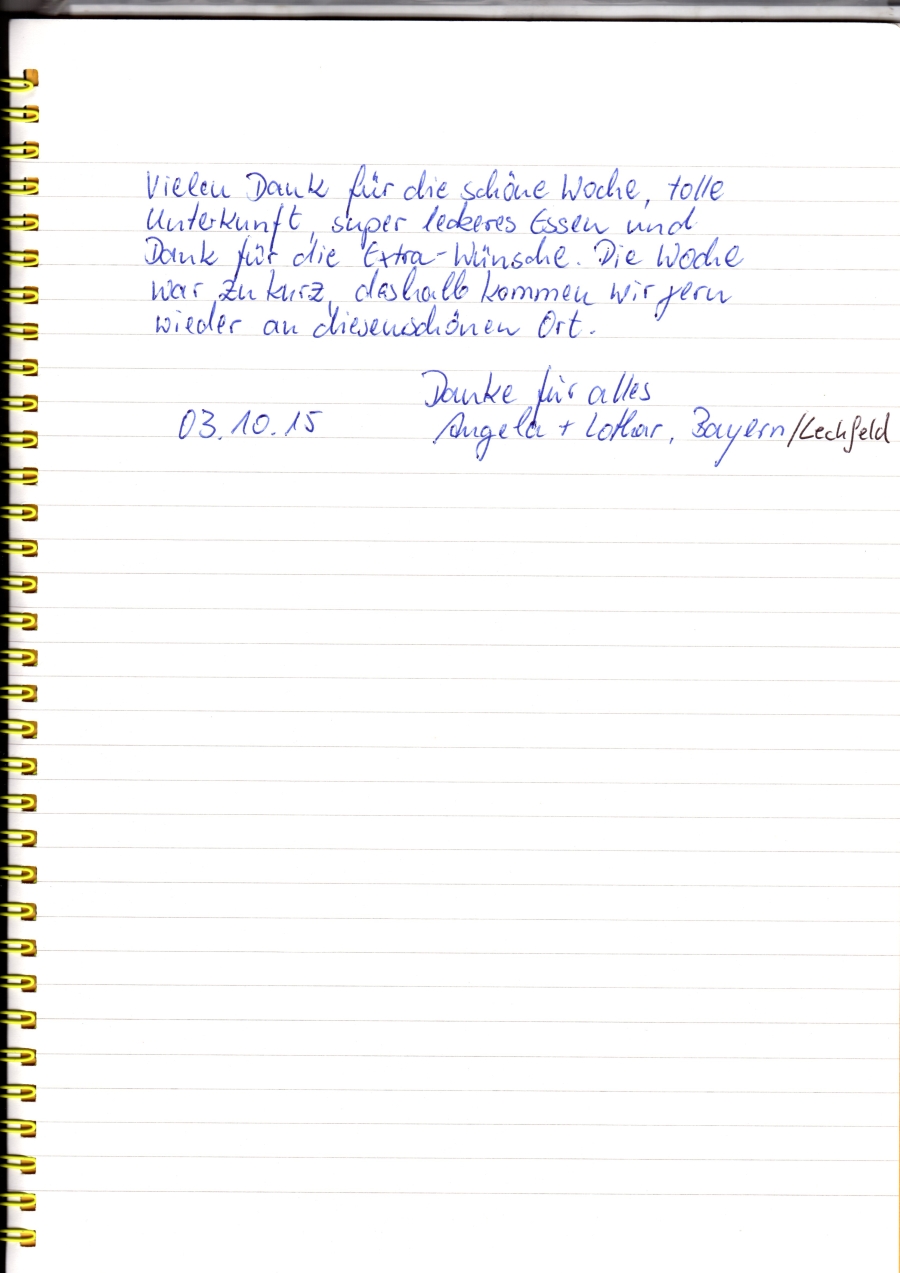 Vielen Dank für die schöne Woche, tolle
Unterkunft, super leckeres Essen und
Dank für die Extra-Wünsche. Die Woche
war zu kurz, deshalb kommen wir gern
wieder an diesen schönen Ort.
Danke für alles
03.10.15 Angela + Lothar, Bayern/Lechfeld